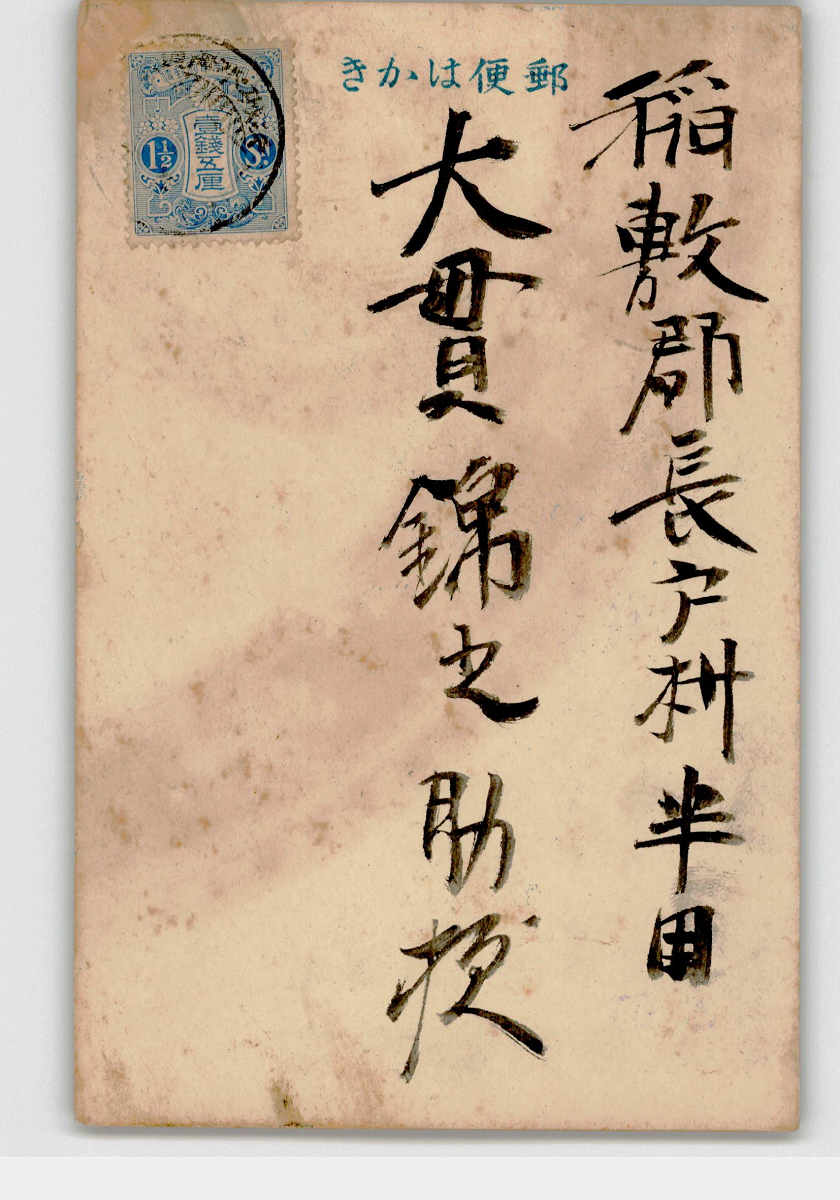 郵便はかき
稲敷郡長戸村半田
大貫錦之助様
壹錢五厘
1½ Sn.